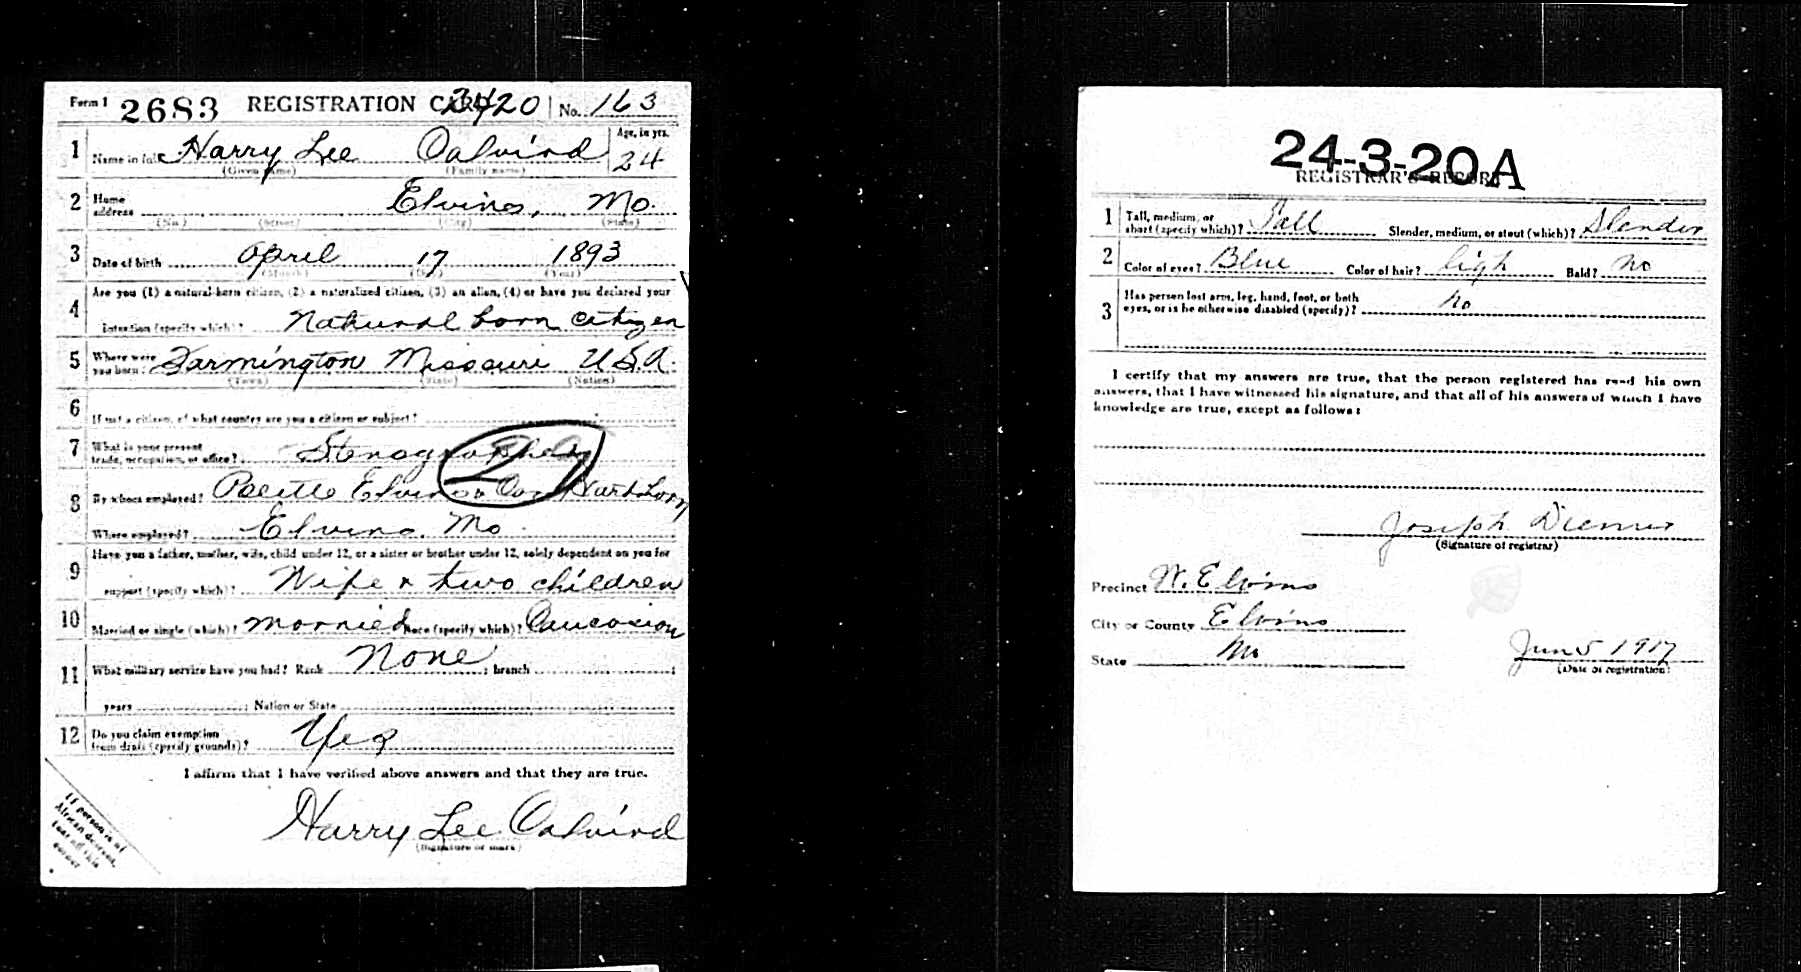 Form 1 2683 REGISTRATION CARD 3420 No. 163
1 Name in full Harry Lee Age, in yrs. 24
(Given name) (Family name)
2 Home address Elvins, Mo.
(No.) (Street) (City) (State)
3 Date of birth April 17 1893
(Month) (Day) (Year)
4 Are you (1) a natural-born citizen, (2) a naturalized citizen, (3) an alien, (4) or have you declared your
intention (specify which)? Natural born citizen
5 Where were you born? Farmington Missouri U.S.A.
(Town) (State) (Nation)
6 If not a citizen, of what country are you a citizen or subject?
7 What is your present trade, occupation, or office? Stenographer
21
8 By whom employed? Elvins
Where employed? Elvins, Mo
9 Have you a father, mother, wife, child under 12, or a sister or brother under 12, solely dependent on you for
support (specify which)? Wife & two children
10 Married or single (which)? Married Race (specify which)? Caucasion
11 What military service have you had? Rank None ; branch ;
years ; Nation or State
12 Do you claim exemption from draft (specify grounds)? Yes
I affirm that I have verified above answers and that they are true.
Harry Lee
(Signature or mark)
If person is of African descent, tear off this corner
24-3-20 A
REGISTRAR'S REPORT
1 Tall, medium, or short (specify which)? Tall Slender, medium, or stout (which)? Slender
2 Color of eyes? Blue Color of hair? ligh Bald? No
3 Has person lost arm, leg, hand, foot, or both eyes, or is he otherwise disabled (specify)? No
I certify that my answers are true, that the person registered has read his own
answers, that I have witnessed his signature, and that all of his answers of which I have
knowledge are true, except as follows:
Joseph
(Signature of registrar)
Precinct W. Elvins
City or County Elvins
State Mo
Jun 5 1917
(Date of registration)